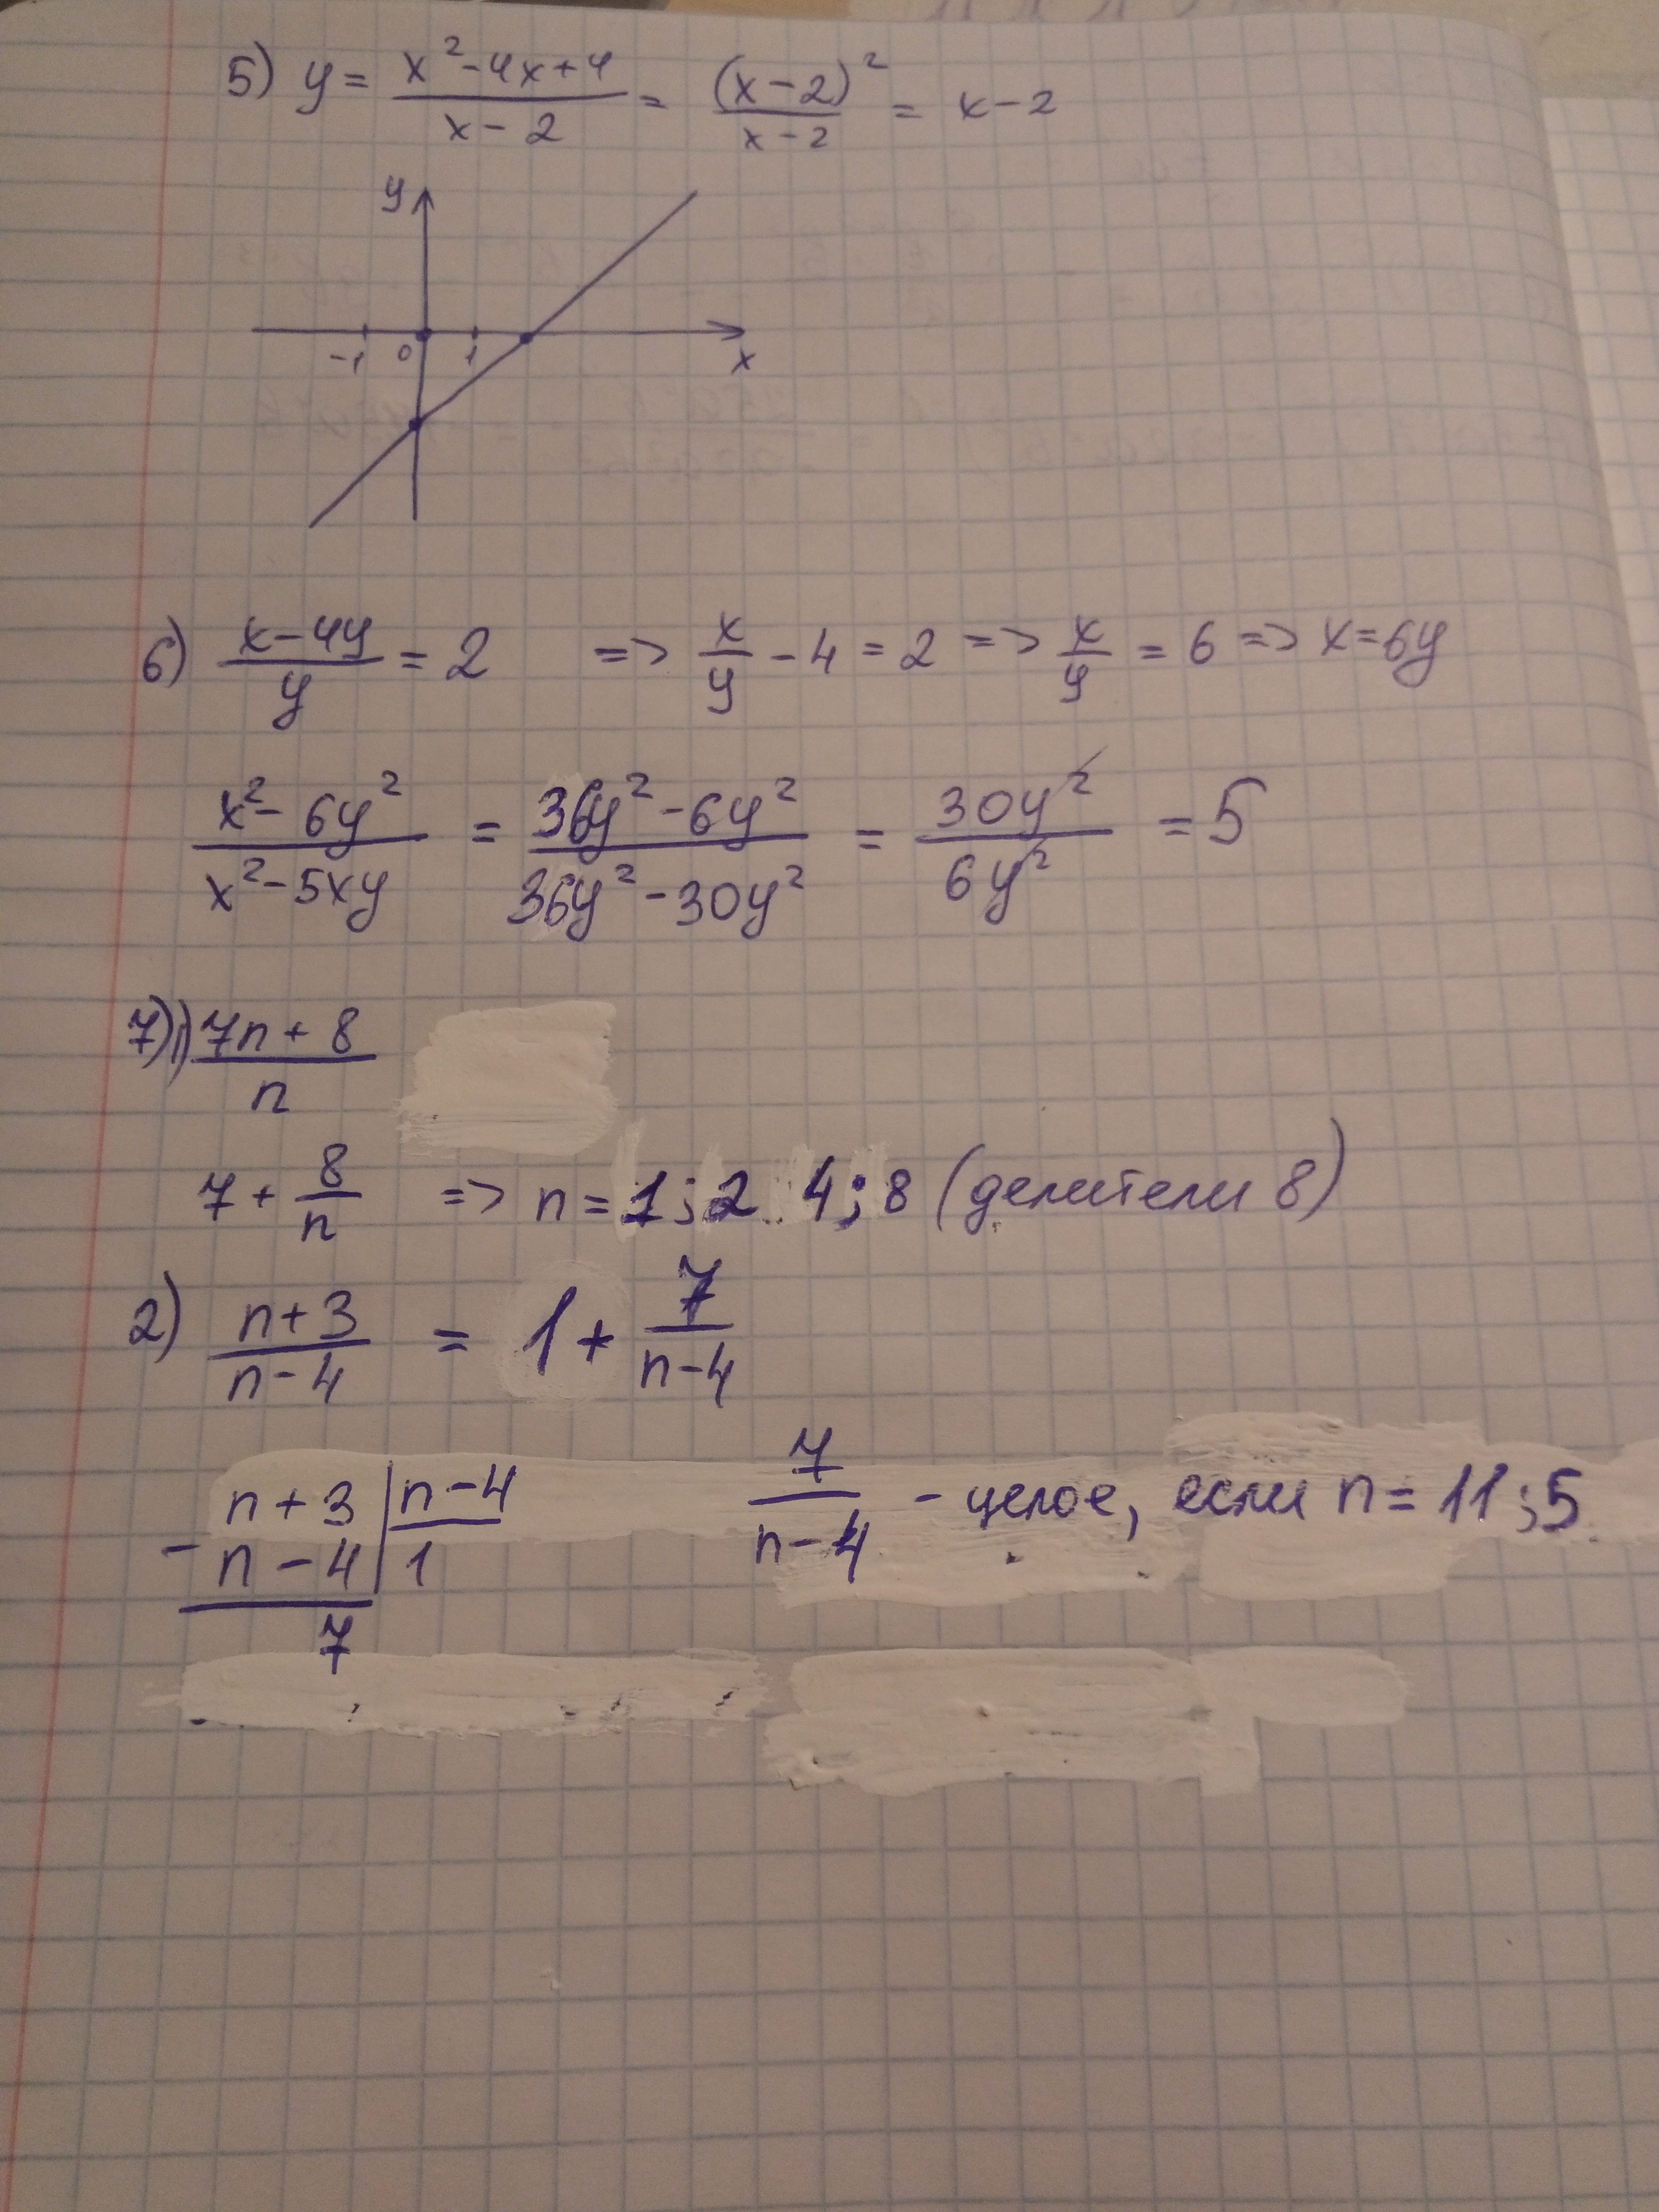 5) y = (x² - 4x + 4)/(x - 2) = (x - 2)²/(x - 2) = x - 2
y
-1 0 1 x
6) (x - 4y)/y = 2 => x/y - 4 = 2 => x/y = 6 => x = 6y
(x² - 6y²)/(x² - 5xy) = (36y² - 6y²)/(36y² - 30y²) = 30y²/6y² = 5
7) 1) (7n + 8)/n
7 + 8/n => n = 1; 2 4; 8 (делители 8)
2) (n + 3)/(n - 4) = 1 + 7/(n - 4)
n + 3 | n - 4
- n - 4 | 1
7
7/(n - 4) - целое, если n = 11; 5